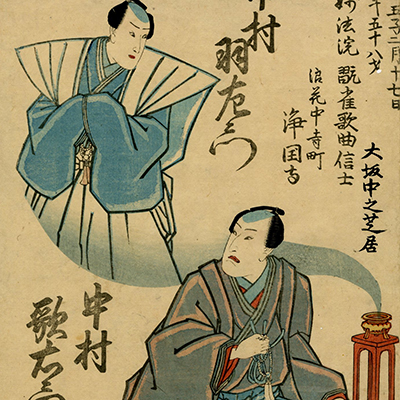 壬子二月十七日
年五十八才
大坂中之芝居
妙法院 翫雀歌曲信士
浪花中寺町
浄国寺
中村
羽左衛門
中村
歌右衛門